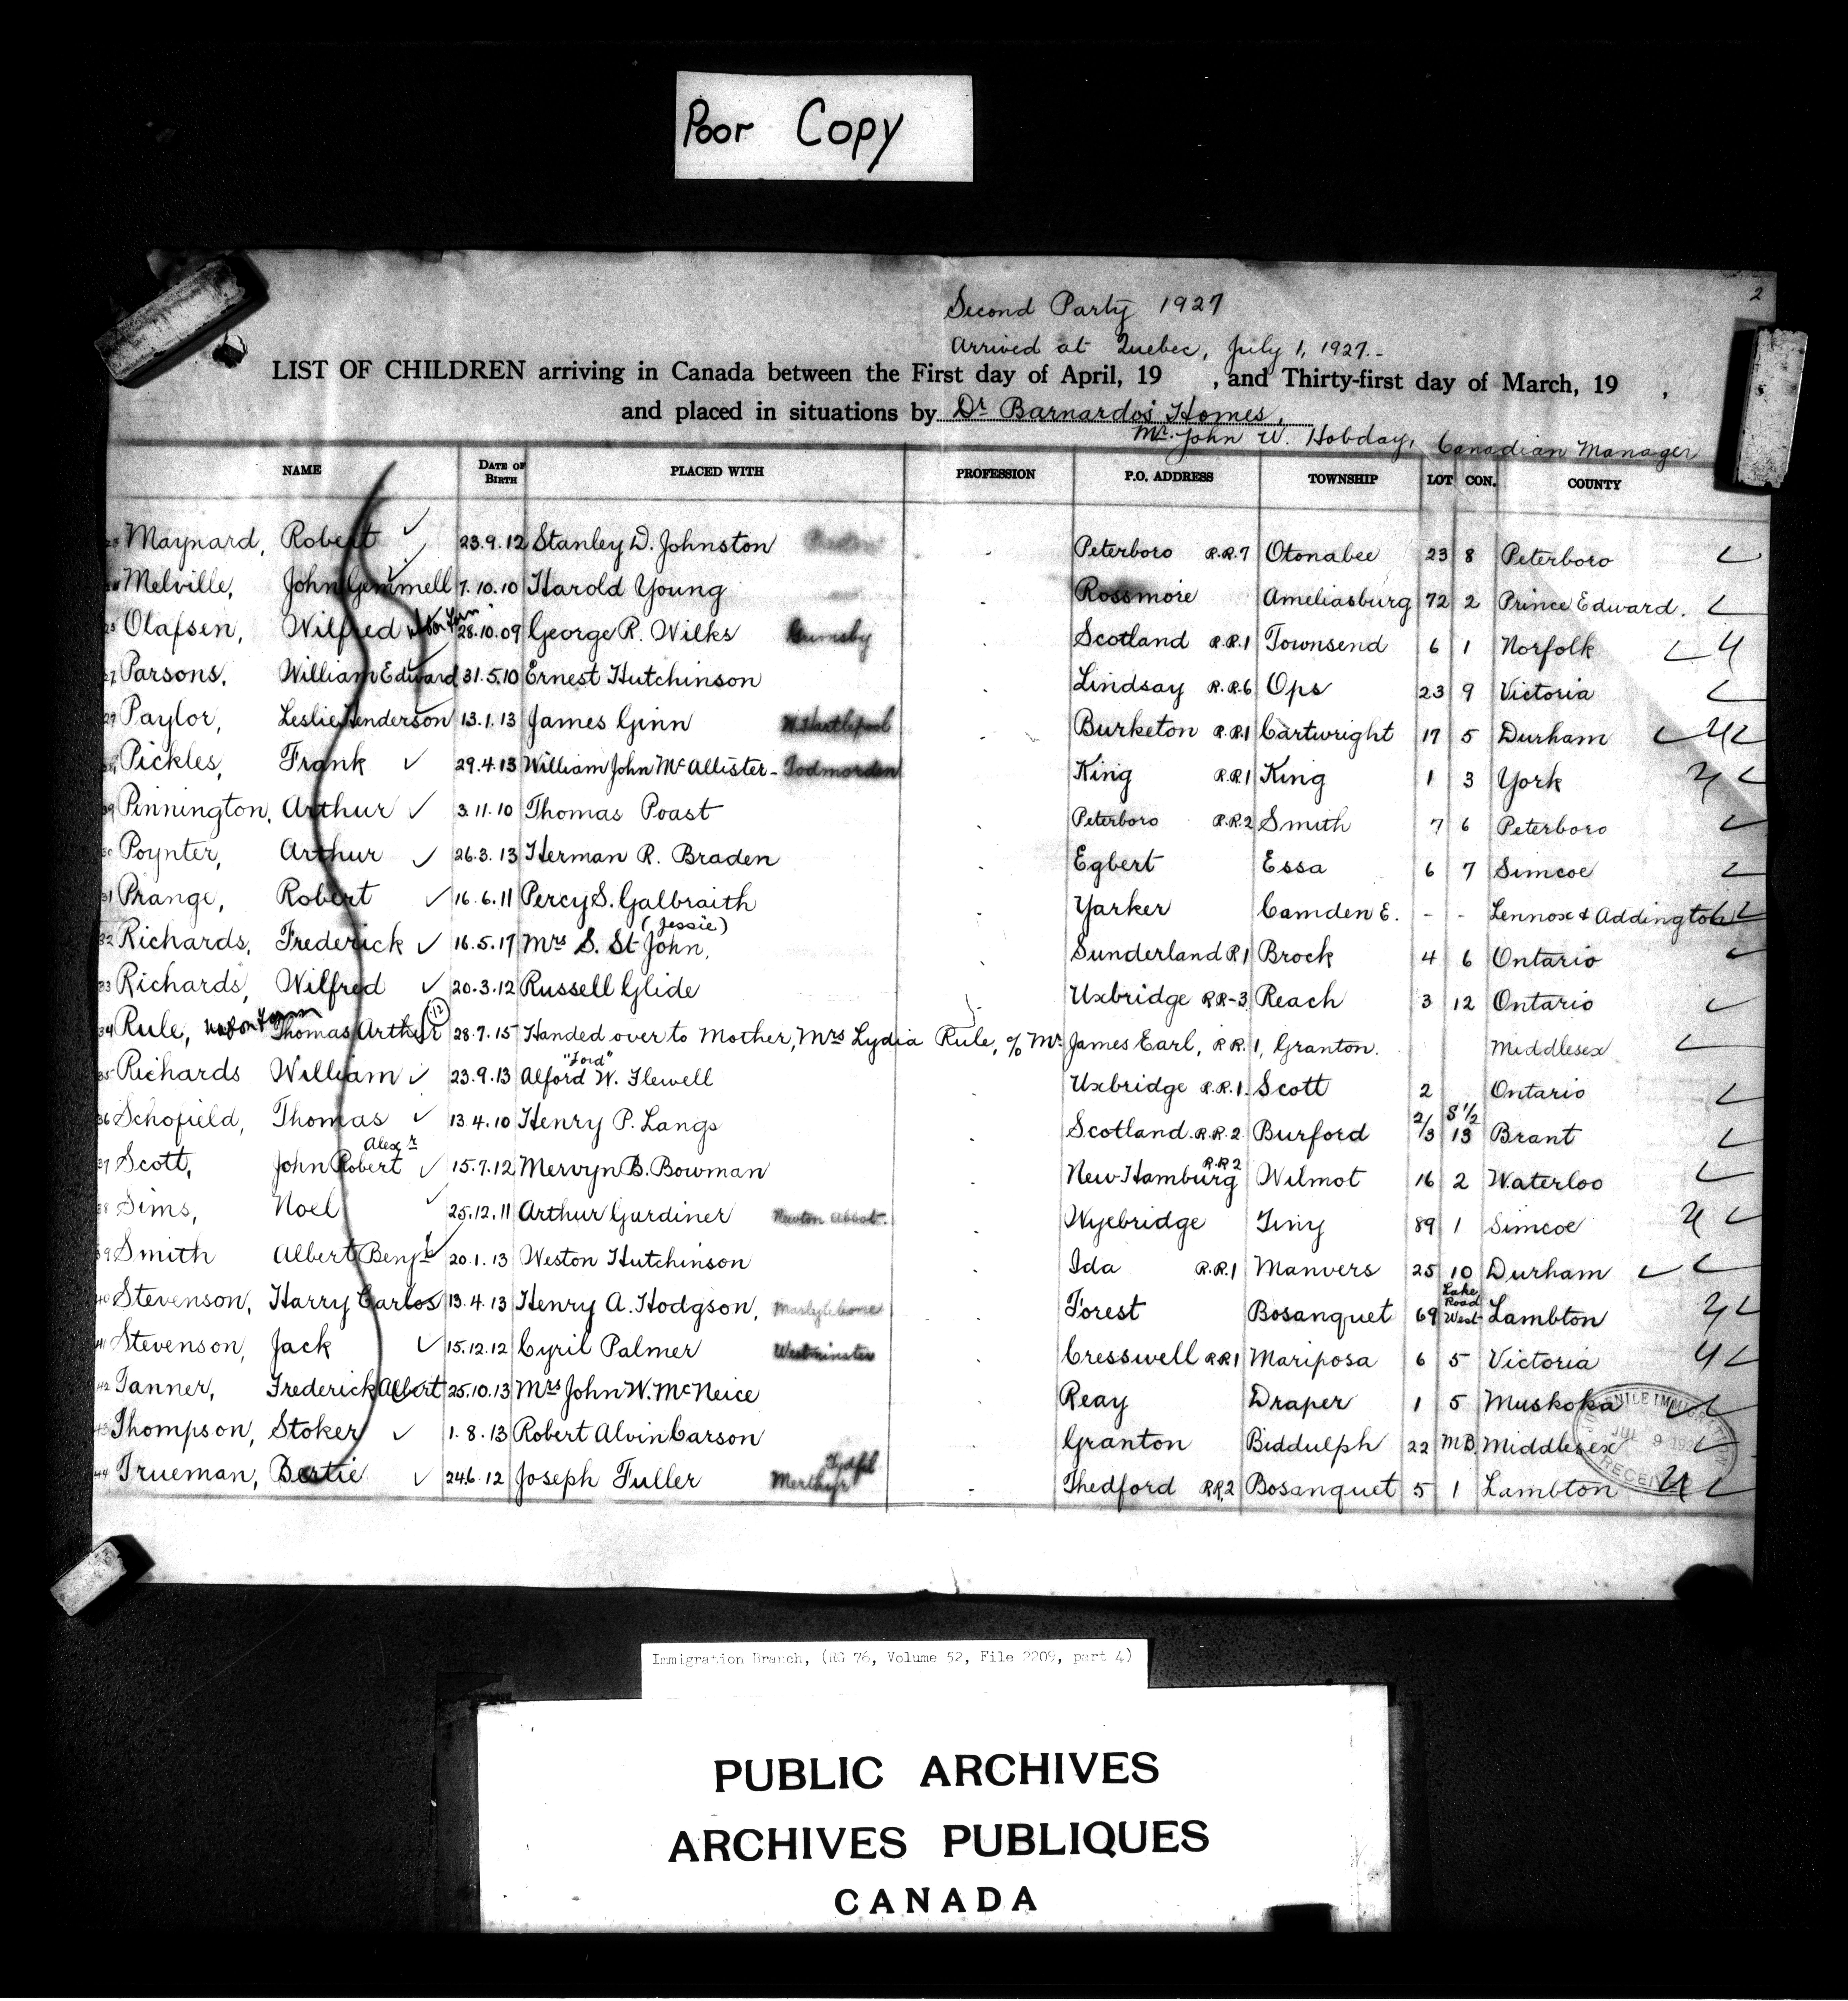 Poor Copy
2
Second Party 1927
Arrived at Quebec, July 1, 1927.-
LIST OF CHILDREN arriving in Canada between the First day of April, 19 , and Thirty-first day of March, 19 ,
and placed in situations by Dr Barnardo's Homes,
Mr. John W. Hobday, Canadian Manager
NAME DATE OF BIRTH PLACED WITH PROFESSION P.O. ADDRESS TOWNSHIP LOT CON. COUNTY
Maynard, Robert 23.9.12 Stanley D. Johnston Peterboro R.R.7 Otonabee 23 8 Peterboro
Melville, John Gemmell 7.10.10 Harold Young Rossmore Ameliasburg 72 2 Prince Edward.
Olafsen, Wilfred 28.10.09 George R. Wilks Grimsby Scotland R.R.1 Townsend 6 1 Norfolk
Parsons, William Edward 31.5.10 Ernest Hutchinson Lindsay R.R.6 Ops 23 9 Victoria
Paylor, Leslie Henderson 13.1.13 James Ginn W. Hartlepool Burketon R.R.1 Cartwright 17 5 Durham
Pickles, Frank 29.4.13 William John McAllister - Todmorden King R.R.1 King 1 3 York
Pinnington, Arthur 3.11.10 Thomas Poast Peterboro R.R.2 Smith 7 6 Peterboro
Poynter, Arthur 26.3.13 Herman R. Braden Egbert Essa 6 7 Simcoe
31 Prange, Robert 16.6.11 Percy S. Galbraith Yarker Camden E. - - Lennox & Addington
(Jessie)
32 Richards, Frederick 16.5.17 Mrs S. St John, Sunderland R1 Brock 4 6 Ontario
33 Richards, Wilfred 20.3.12 Russell Glide Uxbridge RR-3 Reach 3 12 Ontario
34 Rule, Thomas Arthur 12 28.7.15 Handed over to Mother, Mrs Lydia Rule, c/o Mr. James Earl, R.R.1, Granton. Middlesex
"Ford"
35 Richards William 23.9.13 Alford W. Flewell Uxbridge R.R.1. Scott 2 Ontario
36 Schofield, Thomas 13.4.10 Henry P. Langs Scotland R.R.2 Burford 2/3 S 1/2 13 Brant
Alexr
37 Scott, John Robert 15.7.12 Mervyn B. Bowman New Hamburg R.R2 Wilmot 16 2 Waterloo
38 Sims, Noel 25.12.11 Arthur Gardiner Newton Abbot. Wyebridge Tiny 89 1 Simcoe
39 Smith Albert Benjn 20.1.13 Weston Hutchinson Ida R.R.1 Manvers 25 10 Durham
40 Stevenson, Harry Carlos 13.4.13 Henry A. Hodgson, Marylebone Forest Bosanquet 69 Lake Road West Lambton
41 Stevenson, Jack 15.12.12 Cyril Palmer Westminster Cresswell RR1 Mariposa 6 5 Victoria
42 Tanner, Frederick Albert 25.10.13 Mrs John W. McNeice Reay Draper 1 5 Muskoka
43 Thompson, Stoker 1.8.13 Robert Alvin Carson Granton Biddulph 22 M.B. Middlesex
44 Trueman, Bertie 24.6.12 Joseph Fuller Merthyr Tydfil Thedford RR.2 Bosanquet 5 1 Lambton
JUVENILE IMMIGRATION
JUL 9 192
RECEIVED
Immigration Branch, (RG 76, Volume 52, File 2209, part 4)
PUBLIC ARCHIVES
ARCHIVES PUBLIQUES
CANADA